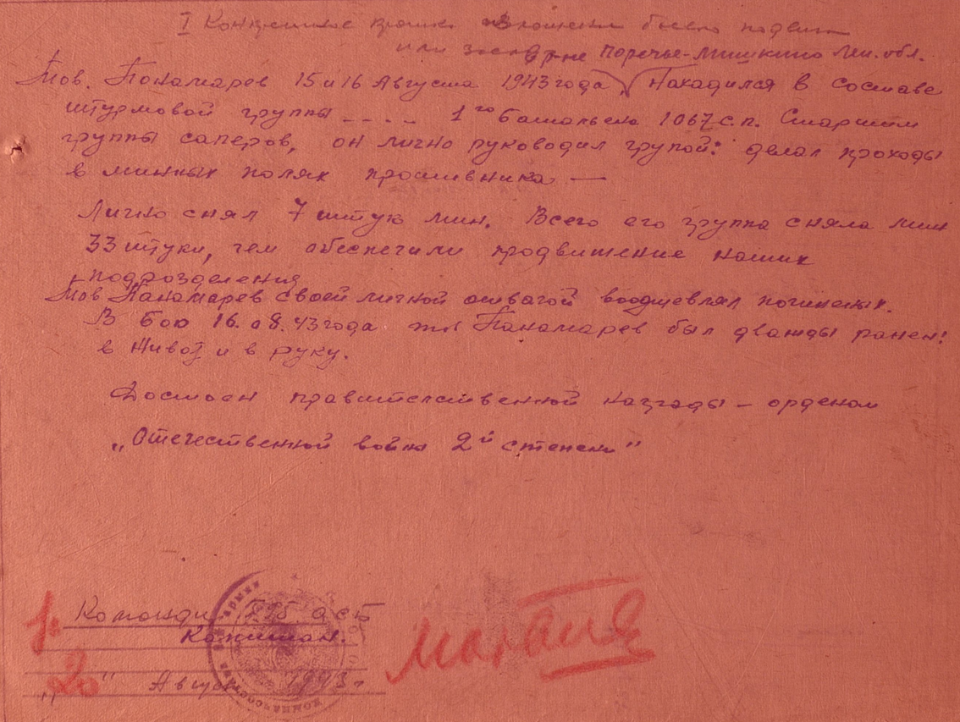 I Конкретное кратко изложение боевого подвига
или заслуг р-не Поречье-Мишкино Лен. обл.
Тов. Понамарев 15 и 16 Августа 1943 года Находился в составе
штурмовой группы 1го батальона 1067 с.п. Старшим
группы саперов, он лично руководил групой: делал проходы
в минных полях противника —
Лично снял 7 штук мин. Всего его группа сняла мин
33 штуки, чем обеспечили продвижение наших
подрозделения
Тов Панамарев своей личной отвагой воодшевлял починеных.
В бою 16.08.43 года тов Панамарев был дважды ранен:
в Живот и в руку.
Достоен правителственной награды – орденом
„Отечественной войны 2й степени"
Командир осб
Капитан.
„20" Август 1943 г